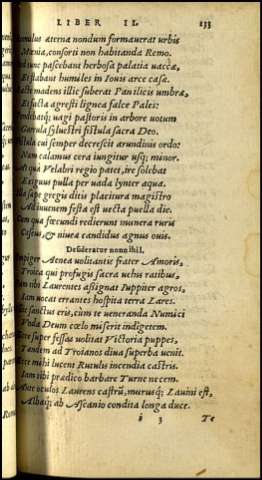 LIBER II. 133
omulus æterna nondum formauerat urbis
Mœnia, consorti non habitanda Remo.
ed tunc pascebant herbosa palatia uaccæ,
Et stabant humiles in Iouis arce casæ.
acte madens illic suberat Pan ilicis umbræ,
Et facta agresti lignea falce Pales:
endebatq; uagi pastoris in arbore uotum
Garrula syluestri fistula sacra Deo.
istula cui semper decrescit arundinis ordo:
Nam calamus cera iungitur usq; minor.
At qua Velabri regio patet, ire solebat
Exiguus pulla per uada lynter aqua.
lla sæpe gregis diti placitura magistro
Ad iuuenem festa est uecta puella die.
Cum qua fœcundi redierunt munera ruris
Caseus, & niueæ candidus agnus ouis.
Desiderator nonnihil.
mpiger Aenea uolitantis frater Amoris,
Troica qui profugis sacra uehis ratibus,
am tibi Laurentes assignat Iuppiter agros,
Iam uocat errantes hospita terra Lares.
llic sanctus eris, cùm te ueneranda Numici
Vnda Deum cœlo miserit indigetem.
cce super fessas uolitat Victoria puppes,
Tandem ad Troianos diua superba uenit.
cce mihi lucent Rutulis incendia castris,
Iam tibi prædico barbare Turne necem.
nte oculos Laurens castrū, murusq; Lauini est,
Albaq; ab Ascanio condita longa duce.
i 3 Te